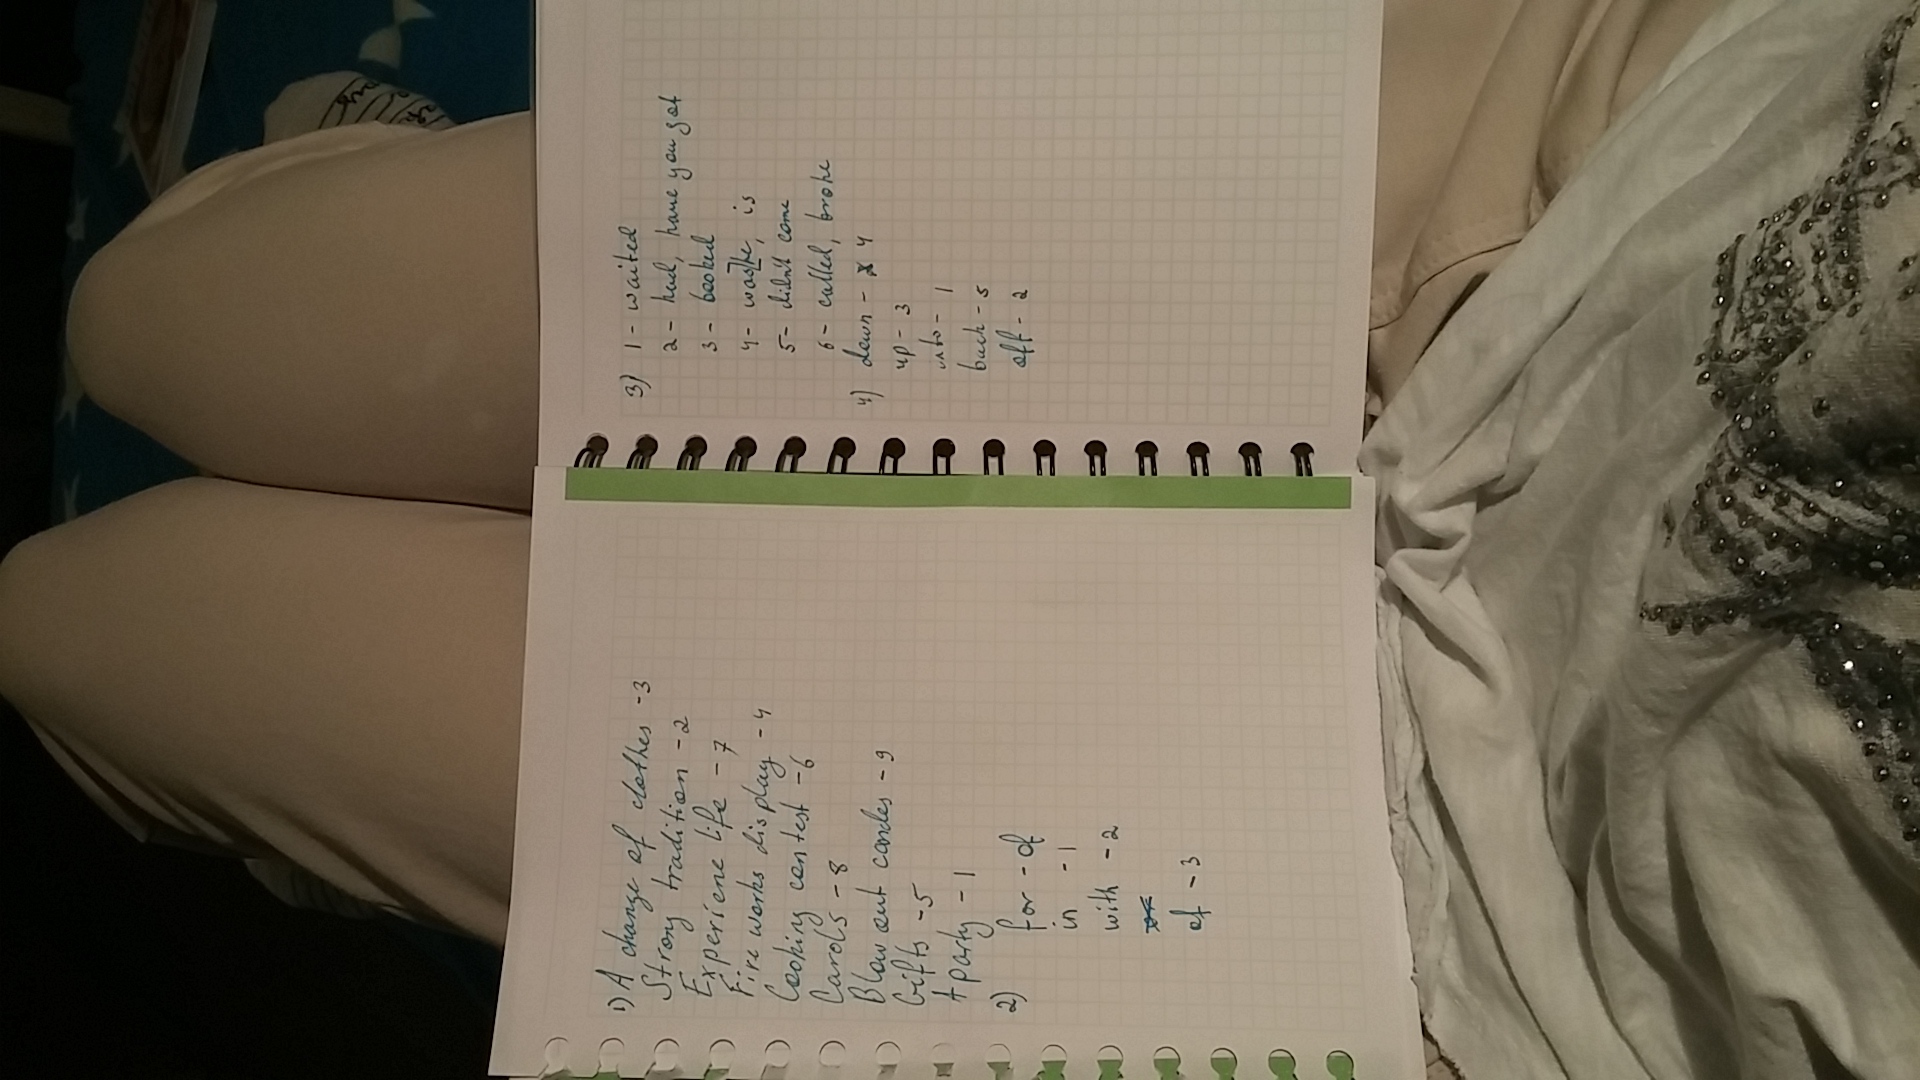 1) A change of clothes - 3
Strong tradition - 2
Experiene life - 7
Fire works display - 4
Cooking contest - 6
Carols - 8
Blow out candes - 9
Gifts - 5
A party - 1
2)
for - of
in - 1
with - 2
of - 3
3) 1 - waited
2 - had, have you got
3 - booked
4 - is
5 - didnt come
6 - called, broke
4) down - 4
up - 3
into - 1
back - 5
off - 2